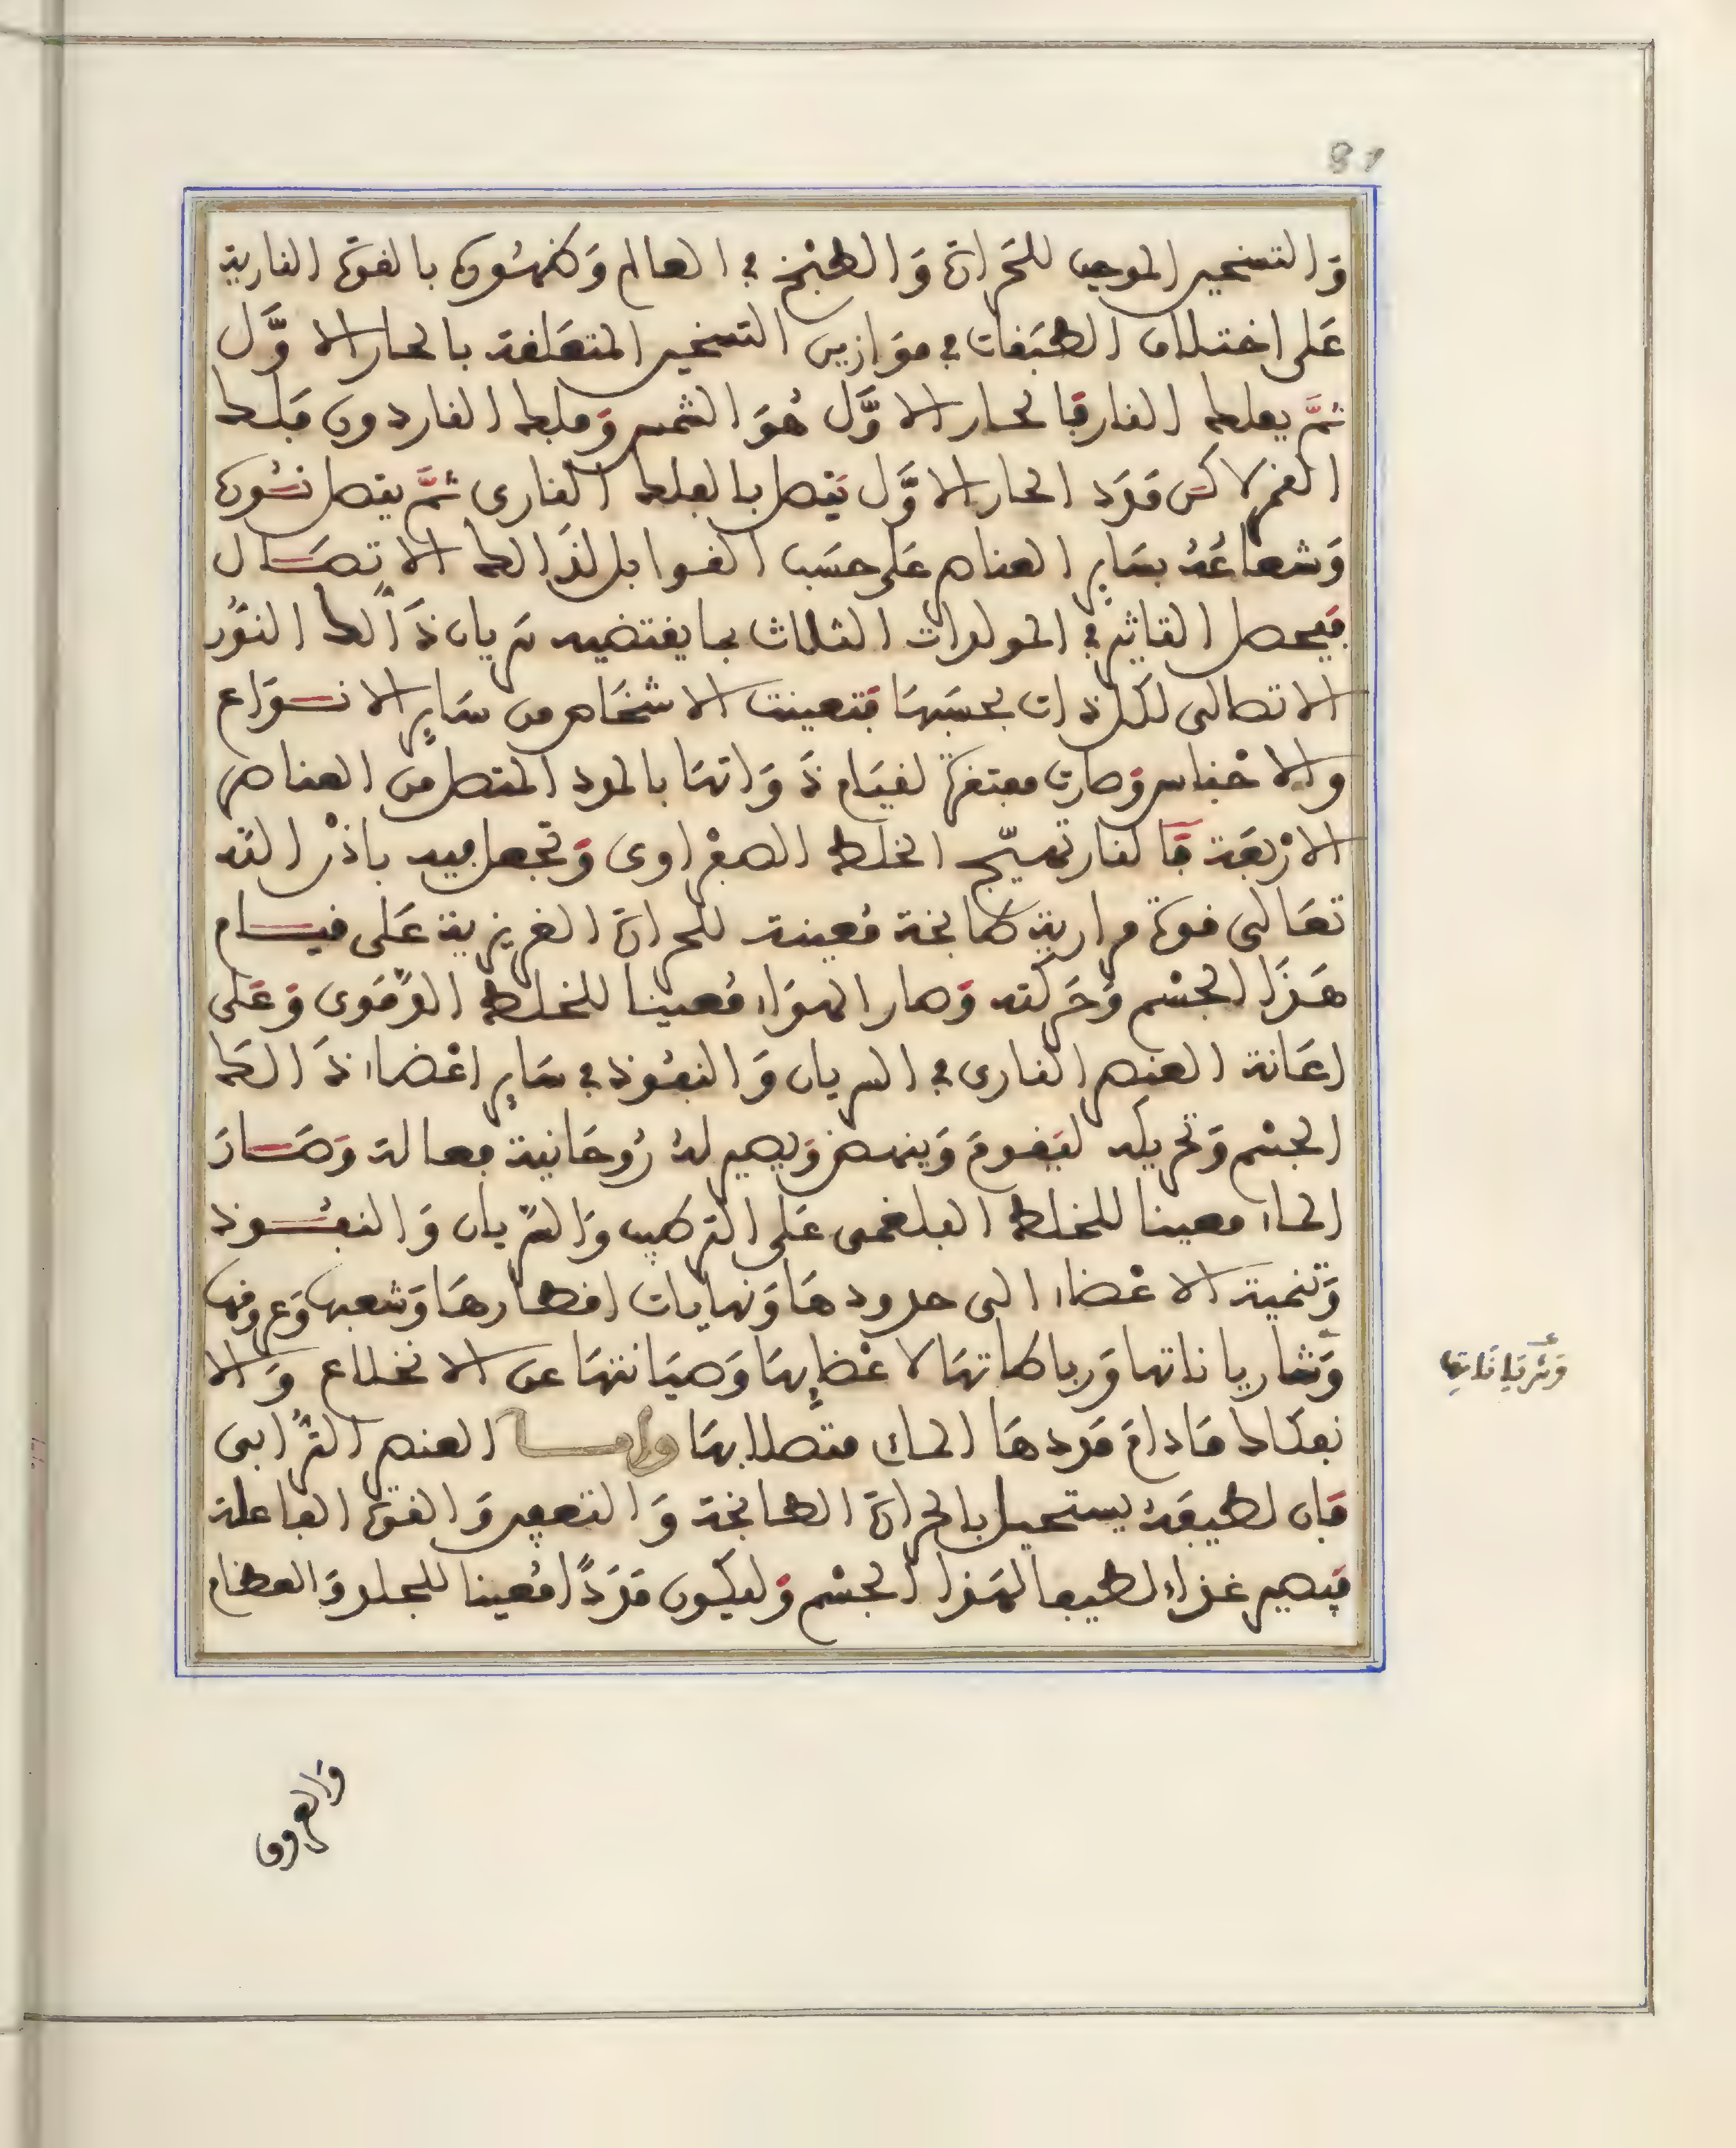 81
وَالتسخير الموجب للحَرارة وَالطبْخ في العالم وَظهُورہ بالقوة النارية
عَلى اختلاف الطبَقات في موَازين التسخير المتعَلقة بالحار الاوَّل
ثمَّ بفلك النار فالحار الاوَّل هُوَ الشمس وَفلك النار دون فلك
القمر لاكن مَدَد الحار الاوَّل يتصل بالفلك النارى ثمَّ يتصل نُورہ
وَشعاعُهُ بسَاير العناصر عَلى حسَب القوابل لذَالك الاتصَال
فيحصل التاثير في المولدات الثلاث بما يقتضيه سريان ذَالك النوُر
الاتصالى لكل ذات بحسَبهَا فتعينت الاشخَاص من سَاير الانوَاع
والاجْناس وَصارت مفتقرة لقيَام ذَوَاتهَا بالمدد المتصل من العناصر
الارْبعَة فَالنار تهيّج الخلط الصفْراوى وَتجعل فيه باذْن اللّه
تعَالى قوة مرارية طابخة مُعينة للحرارة الغريزية عَلى قيام
هَذَا الجسْم وَحَركته وَصار الهوَاء مُعينا للخلط الدَّمَوى وَعَلى
اعَانة العنصر النارى في السريان وَالنفُوذ في سَاير اعْضاء ذَالك
الجسْم وَتحريكه ليَقومَ وَينهض وَيصير لهُ رُوحَانية فعالة وَصَارَ
الماء معينا للخلط البلغمى عَلى التركيب وَالسَّريان وَالنفُوذ
وَتنمية الاعْضاء الى حدودهَا وَنهايات اقطارهَا وَشعبهَا وَعروقها
وَشاريا ناتها وَرباطاتهَا لاعْضايهَا وَصيَانتهَا عن الانخلاع وَالا
نفكاك مَادامَ مَددهَا الماءى متصلا بهَا وامسا العنصر التُّرابى
فان لطيفَهُ يستحيل بالحرارة الطابخة وَالتعفين وَالقوة الفاعلة
فيصير غذاء لطيفا لهَذا الجسْم وَليكون مَدَدًا مُعينا للجلد وَالعظام
وَشَريَانَاتِها
وَالعروق